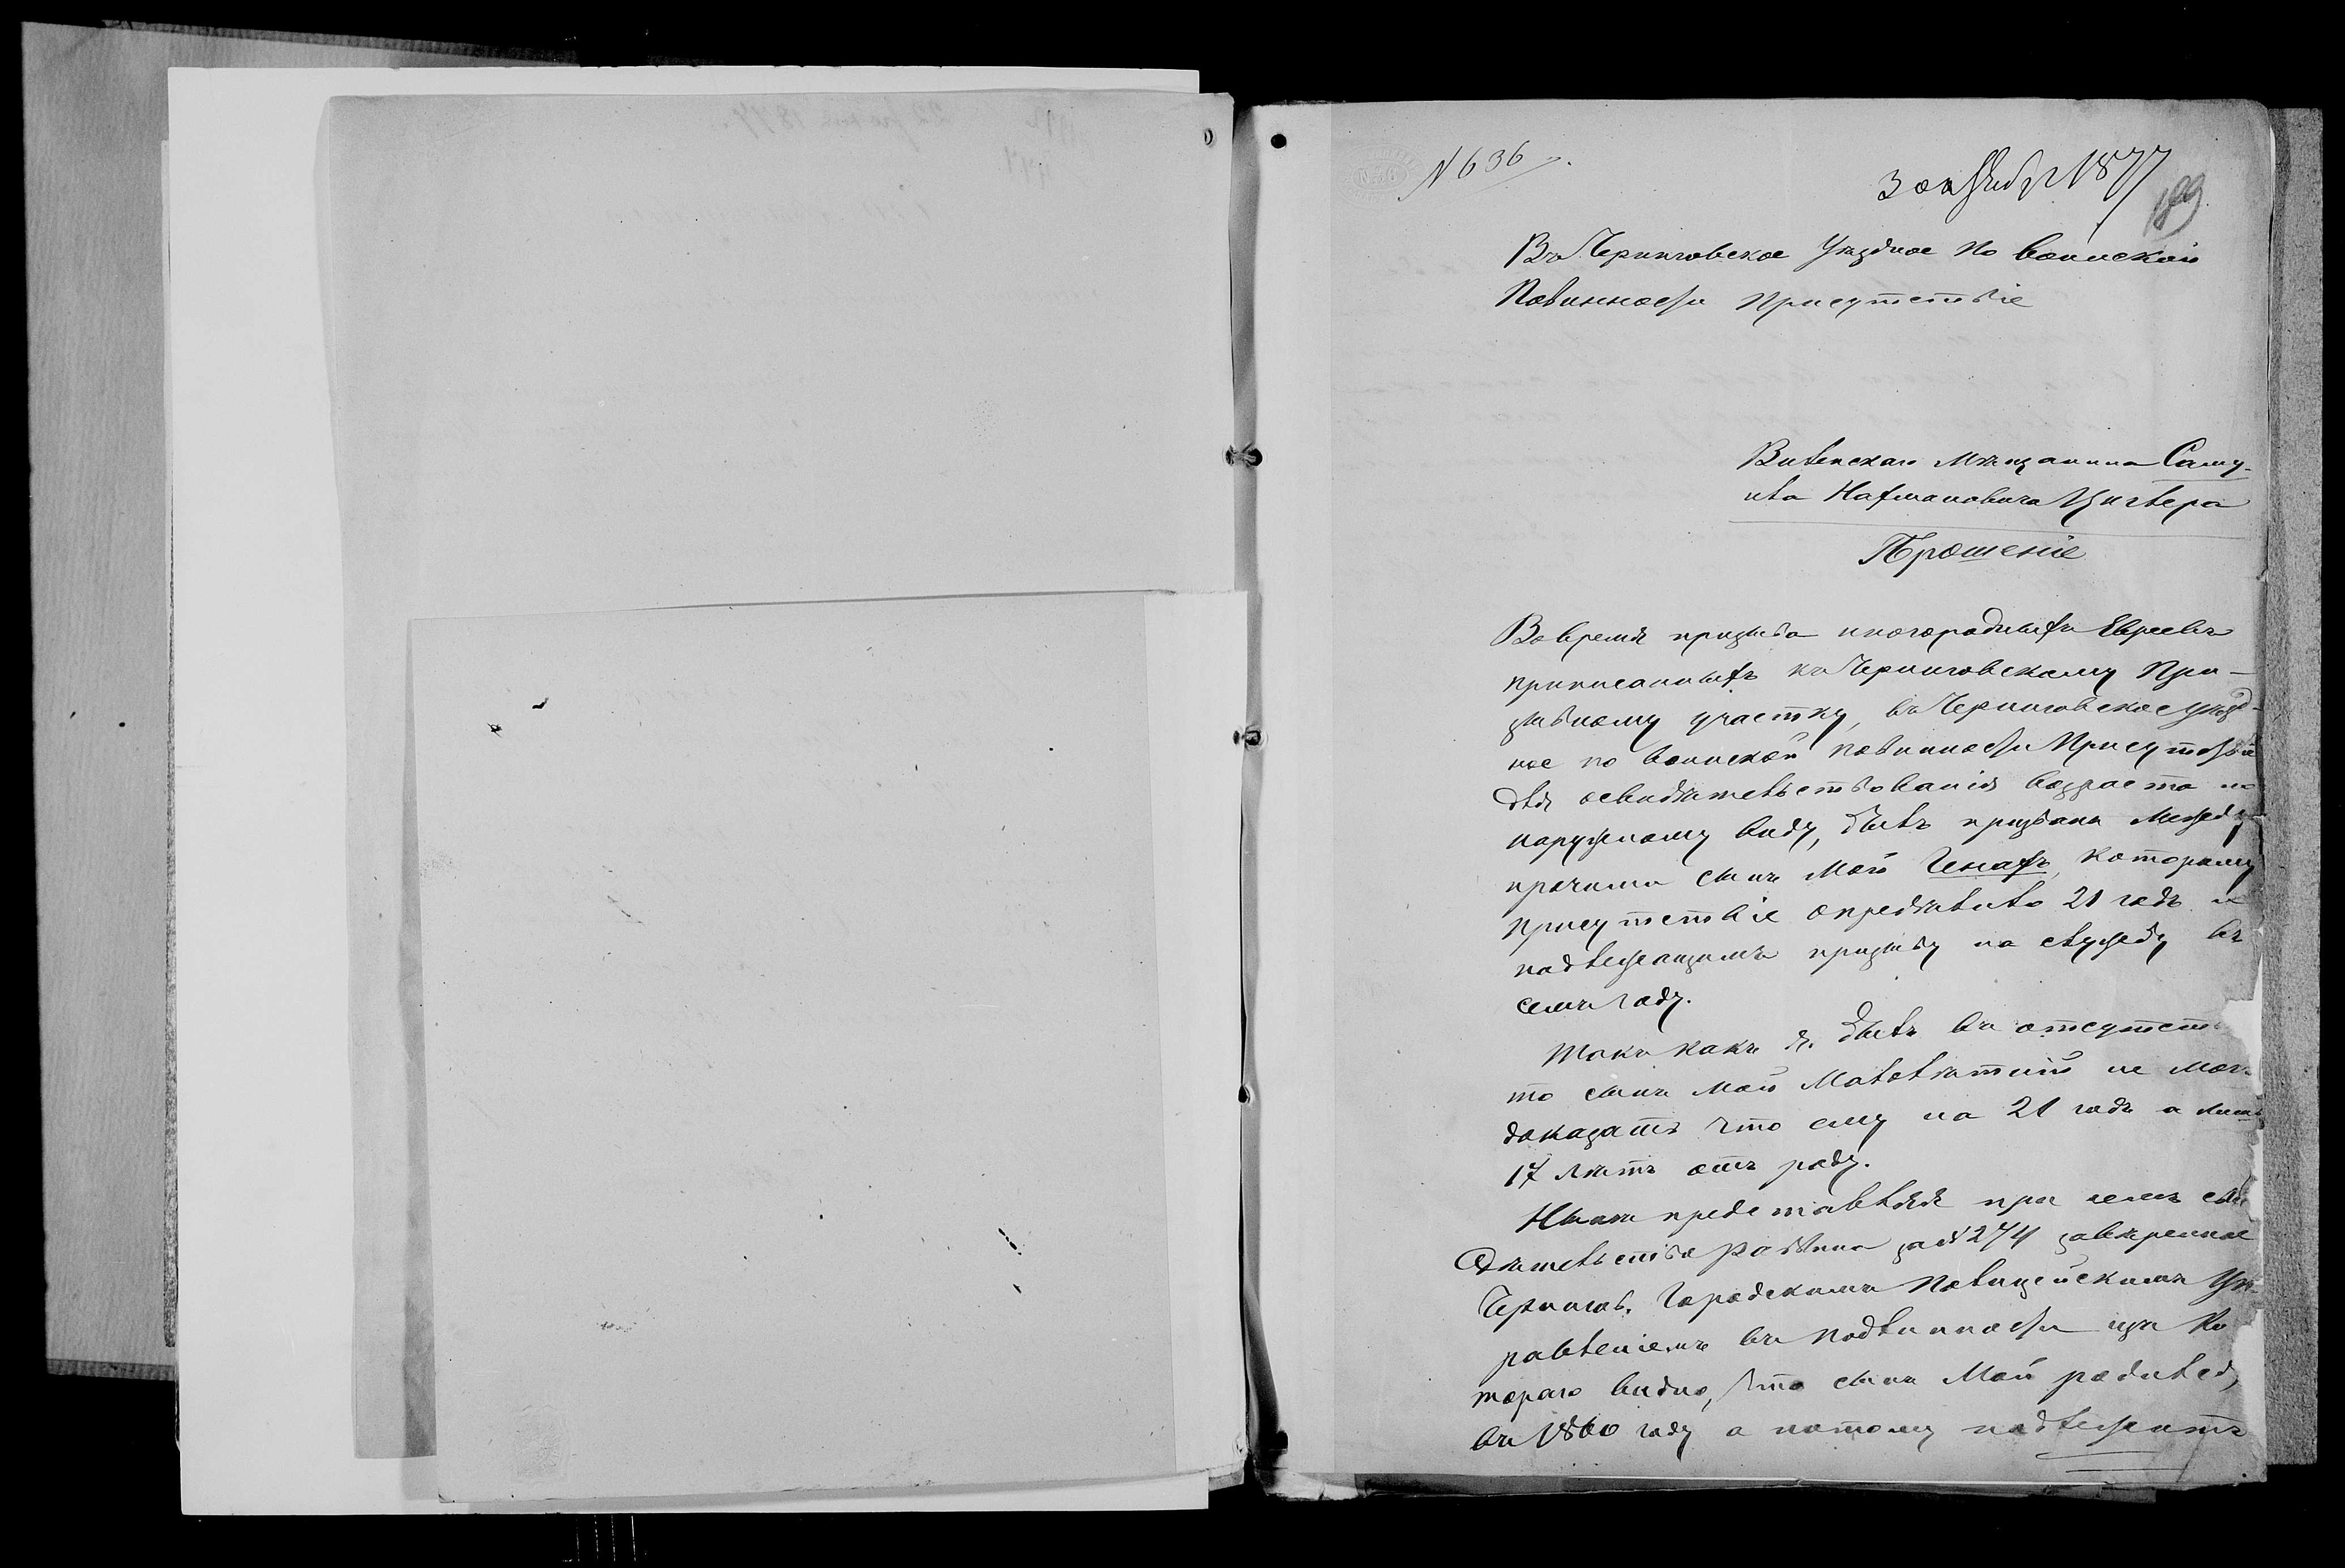 N 636
3 октября 1877
199
Въ Черниговское Уѣздное по воинской
Повинности Присутствіе
Виленскаго Мѣщанина Саму-
ила Нахмановича Циглера
Прошеніе
Во время призыва иногородныхъ Евреевъ
приписанныхъ къ Черниговскому При-
зывному участку, въ Черниговское Уѣзд-
ное по воинской повинности Присутствіе
для освидѣтельствованія возраста по
наружному виду, былъ призванъ Между
прочимъ сынъ Мой Генахъ, которому
присутствіе опредѣлило 21 годъ и
подлежащимъ призыву на службу въ
семъ году.
Такъ какъ я былъ въ отсутств
то сынъ мой Малолѣтній не мог
доказать что ему на 21 годъ а лишь
17 лѣтъ отъ роду.
Нынѣ представляя при семъ сви
дѣтельство раввина за N 274 завѣренное
Чернигов. Городскимъ Полицейскимъ Уп-
равленіемъ въ подлинности изъ ко
тораго видно, что сынъ Мой родился
въ 1860 году а потому подлежитъ